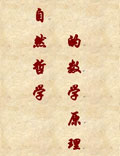 自然哲学
的数学原理